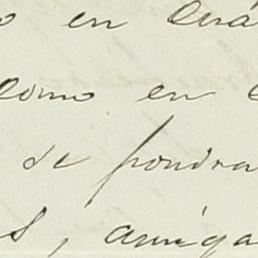 o en
como en
se pondra
s, amiga